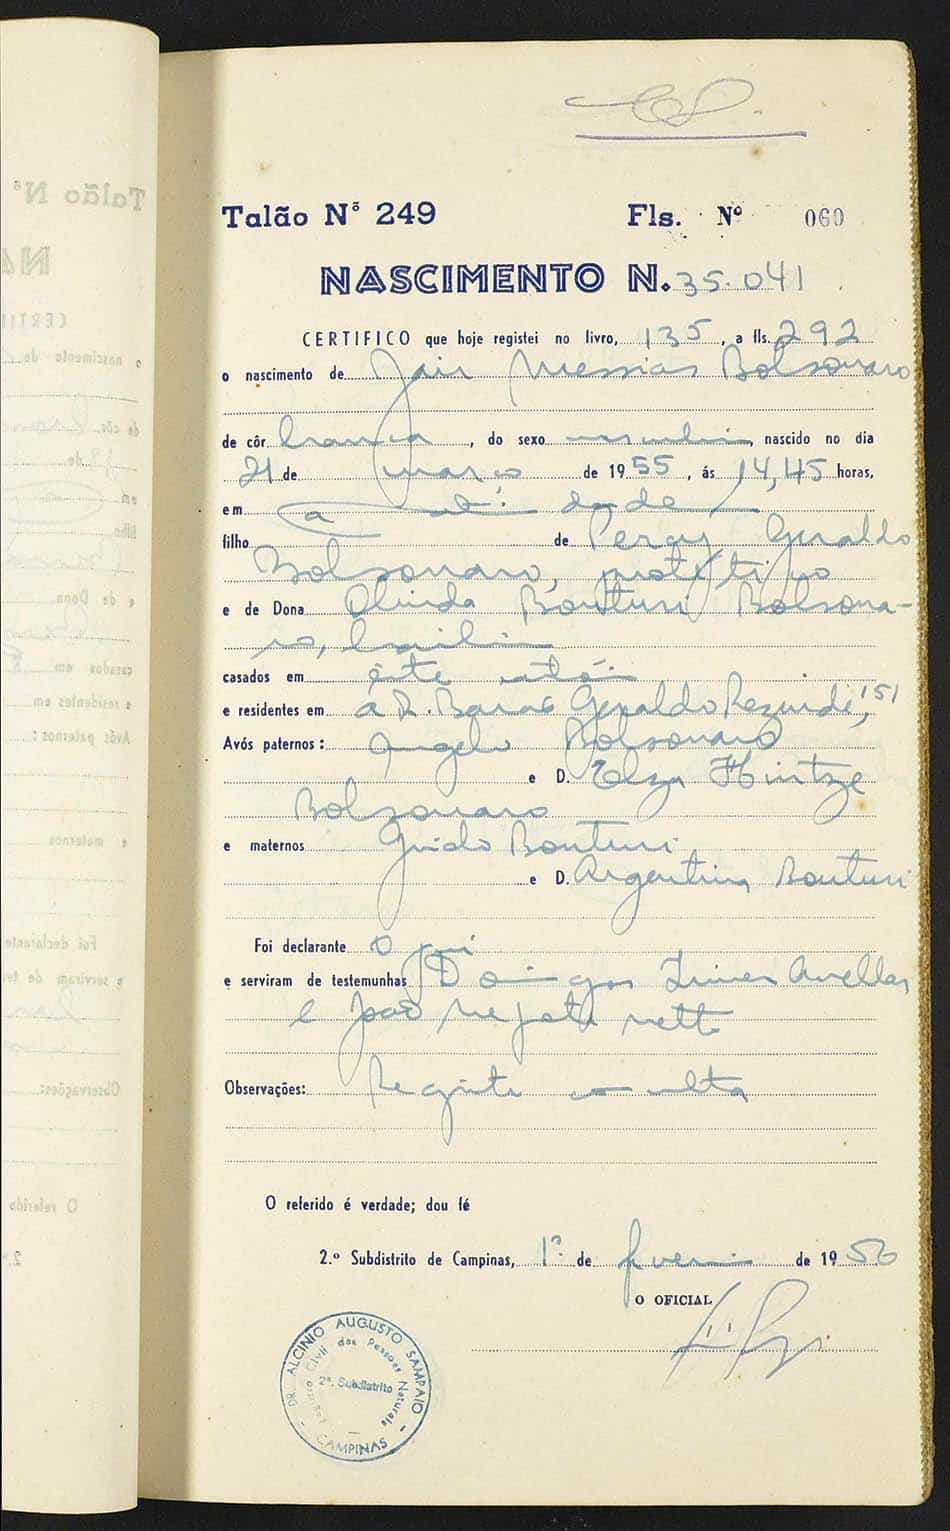 Talão Nº 249 Fls. Nº 060
NASCIMENTO N. 35.041
CERTIFICO que hoje registei no livro, 135, a fls. 292
o nascimento de Jair Messias Bolsonaro
de côr branca, do sexo masculino, nascido no dia
21 de março de 1955, ás 14,45 horas,
em cidade
filho de Percy Geraldo
Bolsonaro, protético
e de Dona Olinda Bonturi Bolsona-
ro, brasileira
casados em êste
e residentes em a R. Barão Geraldo Rezende, 151
Avós paternos: Angelo Bolsonaro
e D. Elza Hintze
Bolzonaro
e maternos Guido Bonturi
e D. Argentina Bonturi
Foi declarante o pai
e serviram de testemunhas Domingos Avellar
e João netto
Observações: Registro multa
O referido é verdade; dou fé
2.º Subdistrito de Campinas, 1º de fevereiro de 1956
O OFICIAL
DR. ALCINIO AUGUSTO SAMPAIO
Registro Civil das Pessoas Naturais
2º. Subdistrito
CAMPINAS
Talão Nº
NA
CERTIF
o nascimento de
de côr
de
em
filho
e de Dona
casados em
e residentes em
Avós paternos:
e maternos
Foi declarante
e serviram de te
Observações:
O referido
2.º